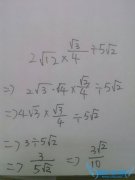 2√12 × √3/4 ÷ 5√2
=> 2√3·√4 × √3/4 ÷ 5√2
=> 4√3 × √3/4 ÷ 5√2
=> 3 ÷ 5√2
=> 3/5√2 => 3√2/10